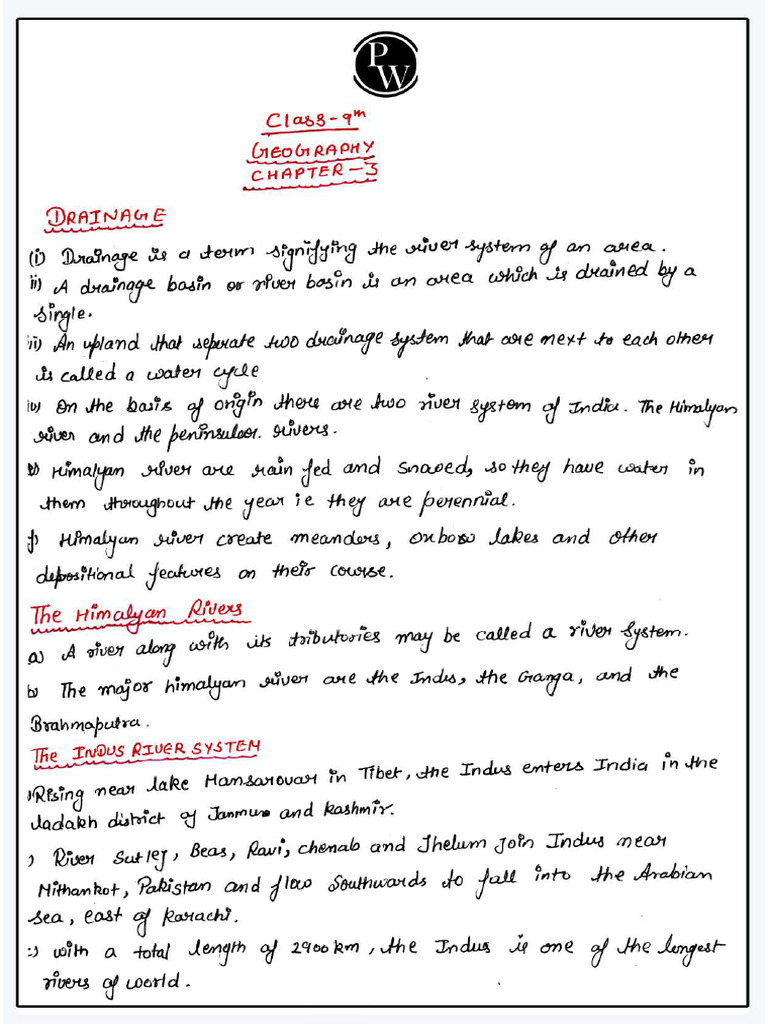 PW
Class-9th
GEOGRAPHY
CHAPTER-3
DRAINAGE
(i) Drainage is a term signifying the river system of an area.
ii) A drainage basin or river basin is an area which is drained by a
single.
iii) An upland that seperate two drainage system that are next to each other
is called a water cycle
iv) On the basis of origin there are two river system of India. The Himalyan
river and the peninsular. rivers.
v) Himalyan river are rain fed and snowed, so they have water in
them throughout the year ie they are perennial.
f) Himalyan river create meanders, oxbow lakes and other
depositional features on their course.
The Himalyan Rivers
a) A river along with its tributories may be called a river system.
b) The major himalyan river are the Indus, the Ganga, and the
Brahmaputra.
The INDUS RIVER SYSTEM
) Rising near lake Mansarovar in Tibet, the Indus enters India in the
ladakh district of Jammu and kashmir.
) River Sutlej, Beas, Ravi, chenab and Jhelum join Indus near
Mithankot, Pakistan and flow southwards to fall into the Arabian
sea, east of karachi.
:) with a total length of 2900 km, the Indus is one of the longest
rivers of world.